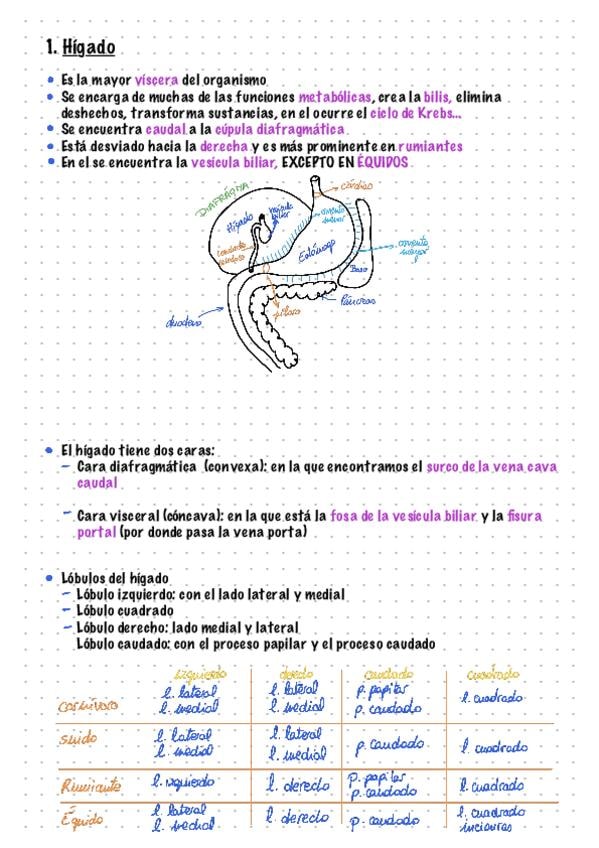 1. Hígado
Es la mayor víscera del organismo
Se encarga de muchas de las funciones metabólicas, crea la bilis, elimina
deshechos, transforma sustancias, en el ocurre el ciclo de Krebs...
Se encuentra caudal a la cúpula diafragmática
Está desviado hacia la derecha y es más prominente en rumiantes
En el se encuentra la vesícula biliar, EXCEPTO EN ÉQUIDOS
DIAFRAGMA
Hígado
vesícula
biliar
cardias
omento
menor
Estómago
omento
mayor
Bazo
Páncreas
píloro
duodeno
El hígado tiene dos caras:
– Cara diafragmática (convexa): en la que encontramos el surco de la vena cava
caudal
– Cara visceral (cóncava): en la que está la fosa de la vesícula biliar y la fisura
portal (por donde pasa la vena porta)
Lóbulos del hígado
– Lóbulo izquierdo: con el lado lateral y medial
– Lóbulo cuadrado
– Lóbulo derecho: lado medial y lateral
Lóbulo caudado: con el proceso papilar y el proceso caudado
izquierdo derecho caudado cuadrado
Carnívoro l. lateral l. lateral p. papilar l. cuadrado
l. medial l. medial p. caudado
Suido l. lateral l. lateral p. caudado l. cuadrado
l. medial l. medial
Rumiante l. izquierdo l. derecho p. papilar l. cuadrado
p. caudado
Équido l. lateral l. derecho p. caudado l. cuadrado
l. medial incisuras